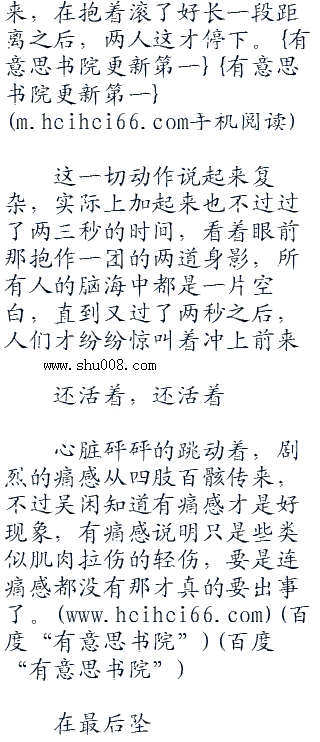 来，在抱着滚了好长一段距
离之后，两人这才停下。{有
意思书院更新第一}{有意思
书院更新第一}
(m.hcihci66.com手机阅读)
这一切动作说起来复
杂，实际上加起来也不过过
了两三秒的时间，看着眼前
那抱作一团的两道身影，所
有人的脑海中都是一片空
白，直到又过了两秒之后，
人们才纷纷惊叫着冲上前来
www.shu008.com
还活着，还活着
心脏砰砰的跳动着，剧
烈的痛感从四肢百骸传来，
不过吴闲知道有痛感才是好
现象，有痛感说明只是些类
似肌肉拉伤的轻伤，要是连
痛感都没有那才真的要出事
了。(www.hcihci66.com)(百
度“有意思书院”)(百度
“有意思书院”)
在最后坠